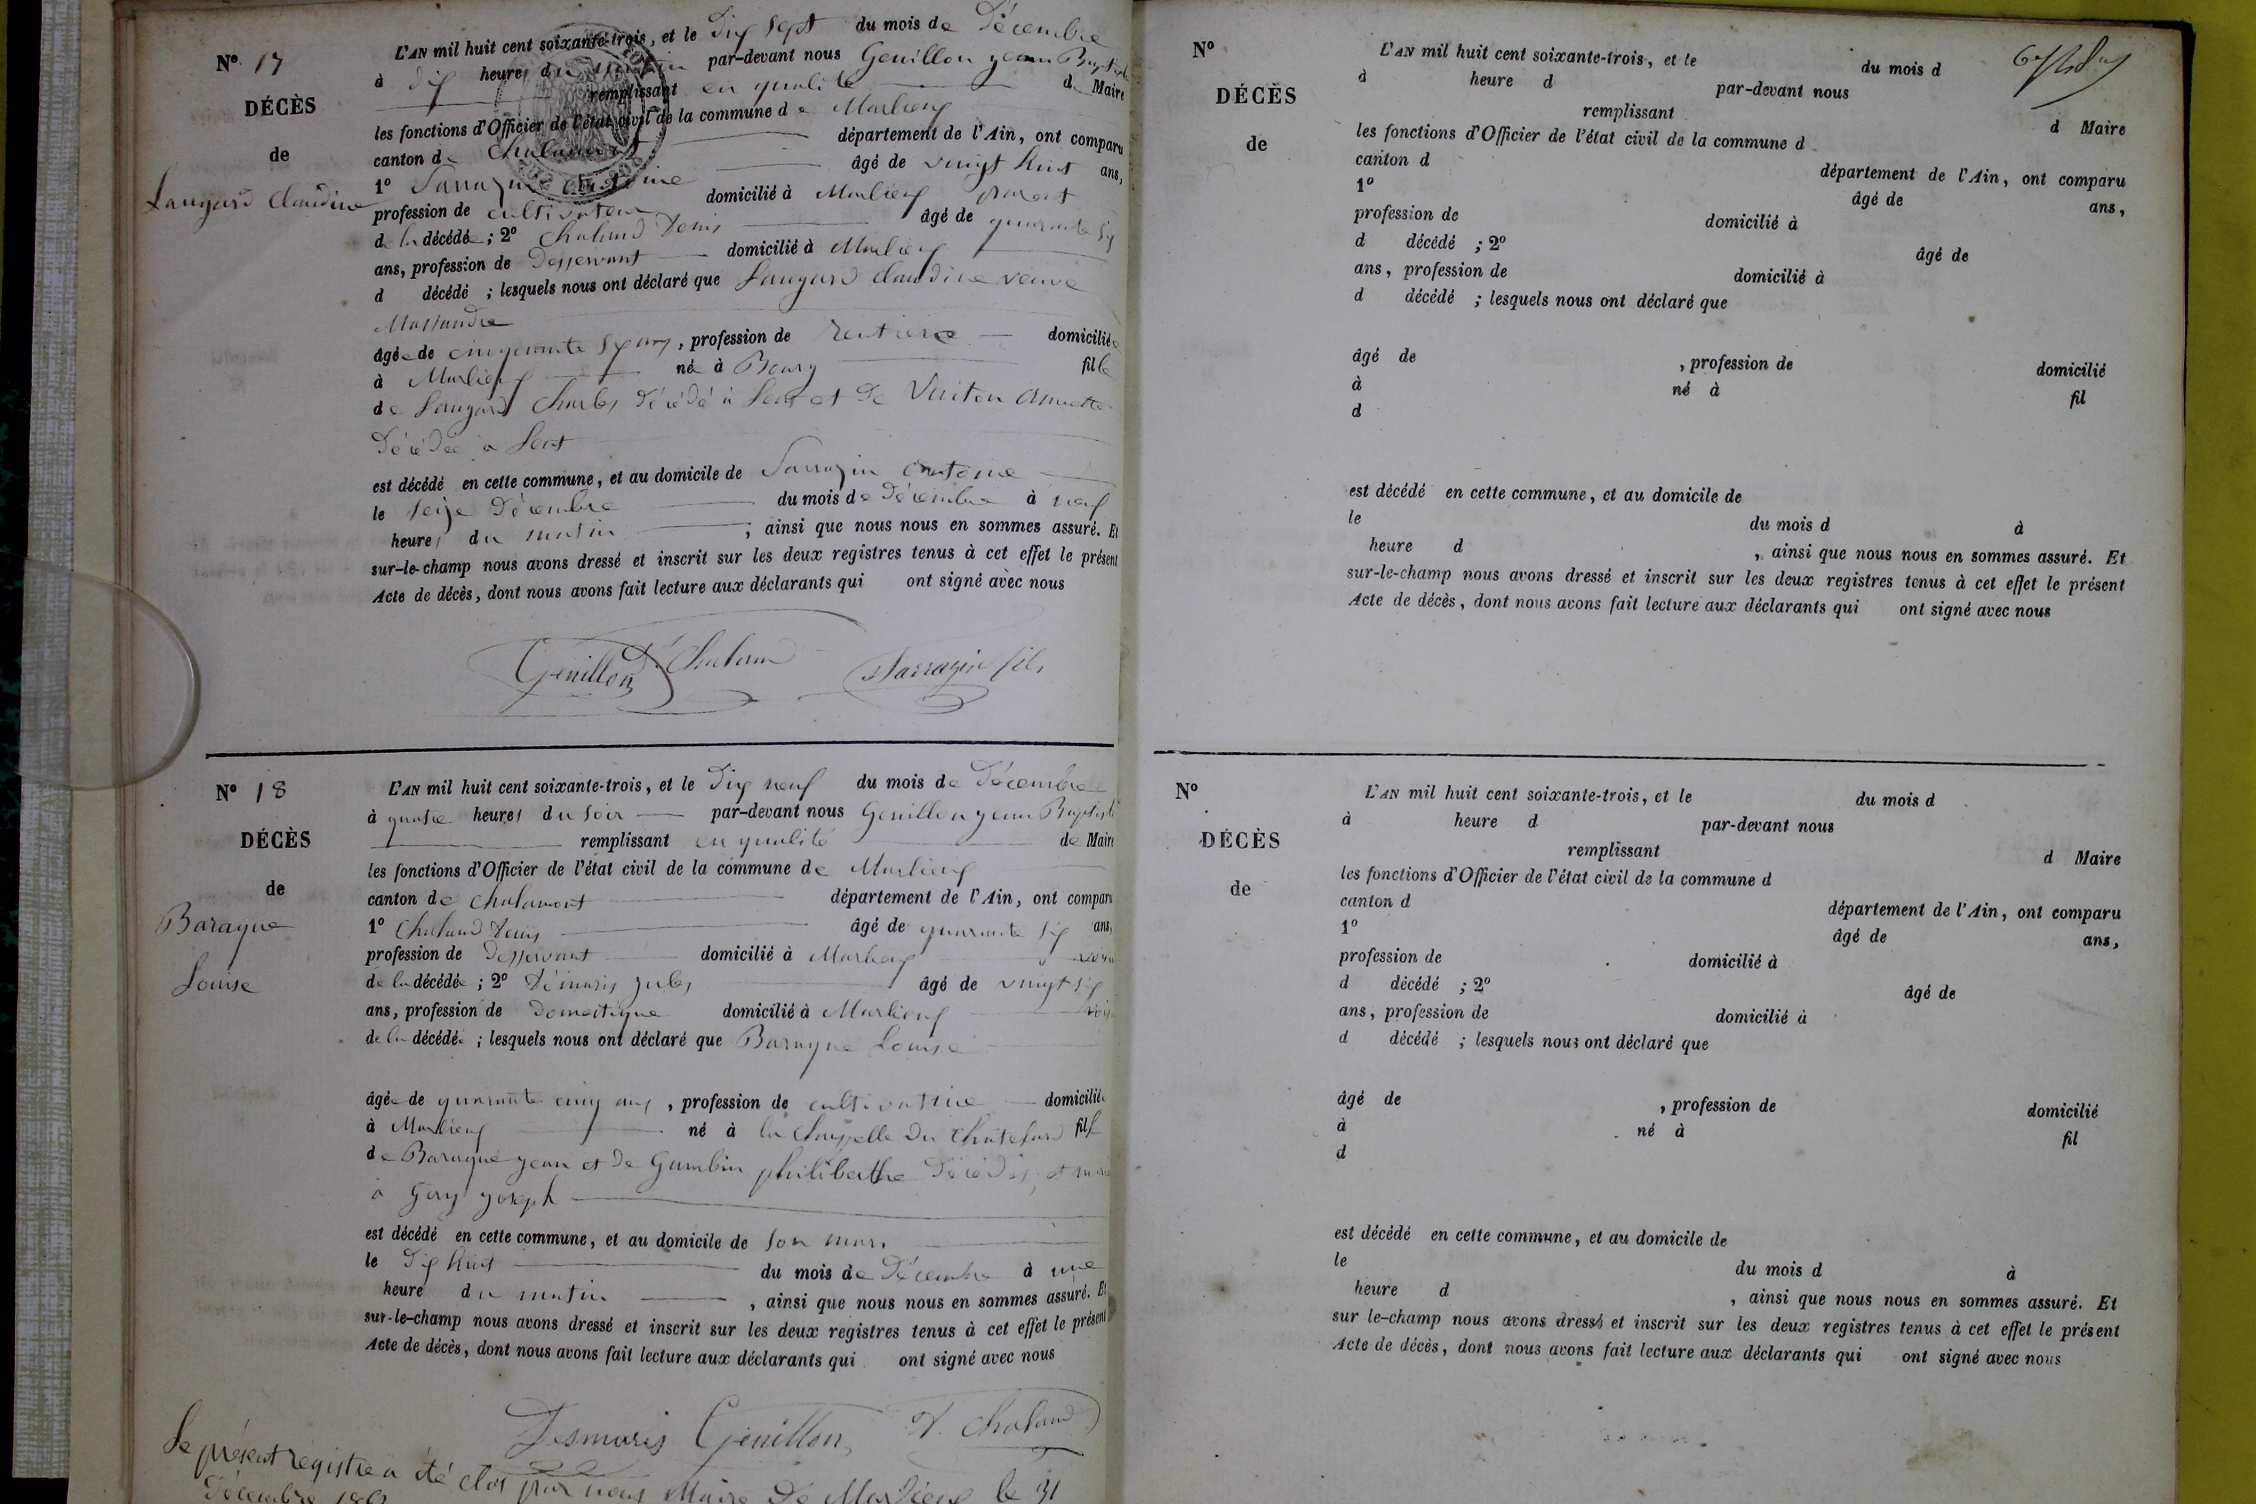 N° 17
DÉCÈS
de
Laugard Claudine
L'AN mil huit cent soixante-trois, et le dix sept du mois de Décembre
à dix heures du matin par-devant nous Genillon jean Baptiste
remplissant en qualité de Maire
les fonctions d'Officier de l'état civil de la commune de Marlieux
canton de Chalamont département de l'Ain, ont comparu
1° Sarrazin Antoine âgé de vingt huit ans,
profession de cultivateur domicilié à Marlieux parent
de la décédée ; 2° Chaland Denis âgé de quarante six
ans, profession de Desservant domicilié à Marlieux
d décédé ; lesquels nous ont déclaré que Laugard Claudine veuve
âgée de cinquante six ans, profession de Rentière domiciliée
à Marlieux née à Bourg fille
de Laugard Charles Décédé à Lent et de Annette
Décédée à Lent
est décédé en cette commune, et au domicile de Sarrazin Antoine
le seize Décembre du mois de Décembre à neuf
heures du matin ; ainsi que nous nous en sommes assuré. Et
sur-le-champ nous avons dressé et inscrit sur les deux registres tenus à cet effet le présent
Acte de décès, dont nous avons fait lecture aux déclarants qui ont signé avec nous
Genillon D. Chaland Sarrazin fils
N° 18
DÉCÈS
de
Baraque
Louise
L'AN mil huit cent soixante-trois, et le dix neuf du mois de Décembre
à quatre heures du soir par-devant nous Genillon jean Baptiste
remplissant en qualité de Maire
les fonctions d'Officier de l'état civil de la commune de Marlieux
canton de Chalamont département de l'Ain, ont comparu
1° Chaland Denis âgé de quarante six ans,
profession de Desservant domicilié à Marlieux voisin
de la décédée ; 2° Démaris jules âgé de vingt six
ans, profession de Domestique domicilié à Marlieux voisin
de la décédée ; lesquels nous ont déclaré que Baraque Louise
âgée de quarante cinq ans, profession de cultivatrice domiciliée
à Marlieux né à la Chappelle du Chatelard fille
de Baraque jean et de Gambin philiberthe Décédés, et mariée
à Gory joseph
est décédé en cette commune, et au domicile de son mari
le Dix huit du mois de Décembre à une
heure du matin , ainsi que nous nous en sommes assuré. Et
sur-le-champ nous avons dressé et inscrit sur les deux registres tenus à cet effet le présent
Acte de décès, dont nous avons fait lecture aux déclarants qui ont signé avec nous
Desmaris Genillon D. Chaland
Le présent registre a été clos par nous Maire de Marlieux le 31
Décembre 1863
N°
DÉCÈS
de
L'AN mil huit cent soixante-trois, et le du mois d
à heure d par-devant nous
remplissant d Maire
les fonctions d'Officier de l'état civil de la commune d
canton d département de l'Ain, ont comparu
1° âgé de ans,
profession de domicilié à
d décédé ; 2° âgé de
ans, profession de domicilié à
d décédé ; lesquels nous ont déclaré que
âgé de , profession de domicilié
à né à fil
d
est décédé en cette commune, et au domicile de
le du mois d à
heure d , ainsi que nous nous en sommes assuré. Et
sur-le-champ nous avons dressé et inscrit sur les deux registres tenus à cet effet le présent
Acte de décès, dont nous avons fait lecture aux déclarants qui ont signé avec nous
N°
DÉCÈS
de
L'AN mil huit cent soixante-trois, et le du mois d
à heure d par-devant nous
remplissant d Maire
les fonctions d'Officier de l'état civil de la commune d
canton d département de l'Ain, ont comparu
1° âgé de ans,
profession de domicilié à
d décédé ; 2° âgé de
ans, profession de domicilié à
d décédé ; lesquels nous ont déclaré que
âgé de , profession de domicilié
à né à fil
d
est décédé en cette commune, et au domicile de
le du mois d à
heure d , ainsi que nous nous en sommes assuré. Et
sur le-champ nous avons dressé et inscrit sur les deux registres tenus à cet effet le présent
Acte de décès, dont nous avons fait lecture aux déclarants qui ont signé avec nous